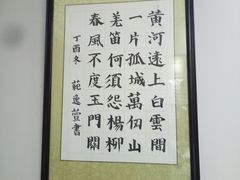 黃河遠上白雲間
一片孤城萬仞山
羌笛何須怨楊柳
春風不度玉門關
丁酉冬 范逸萱書